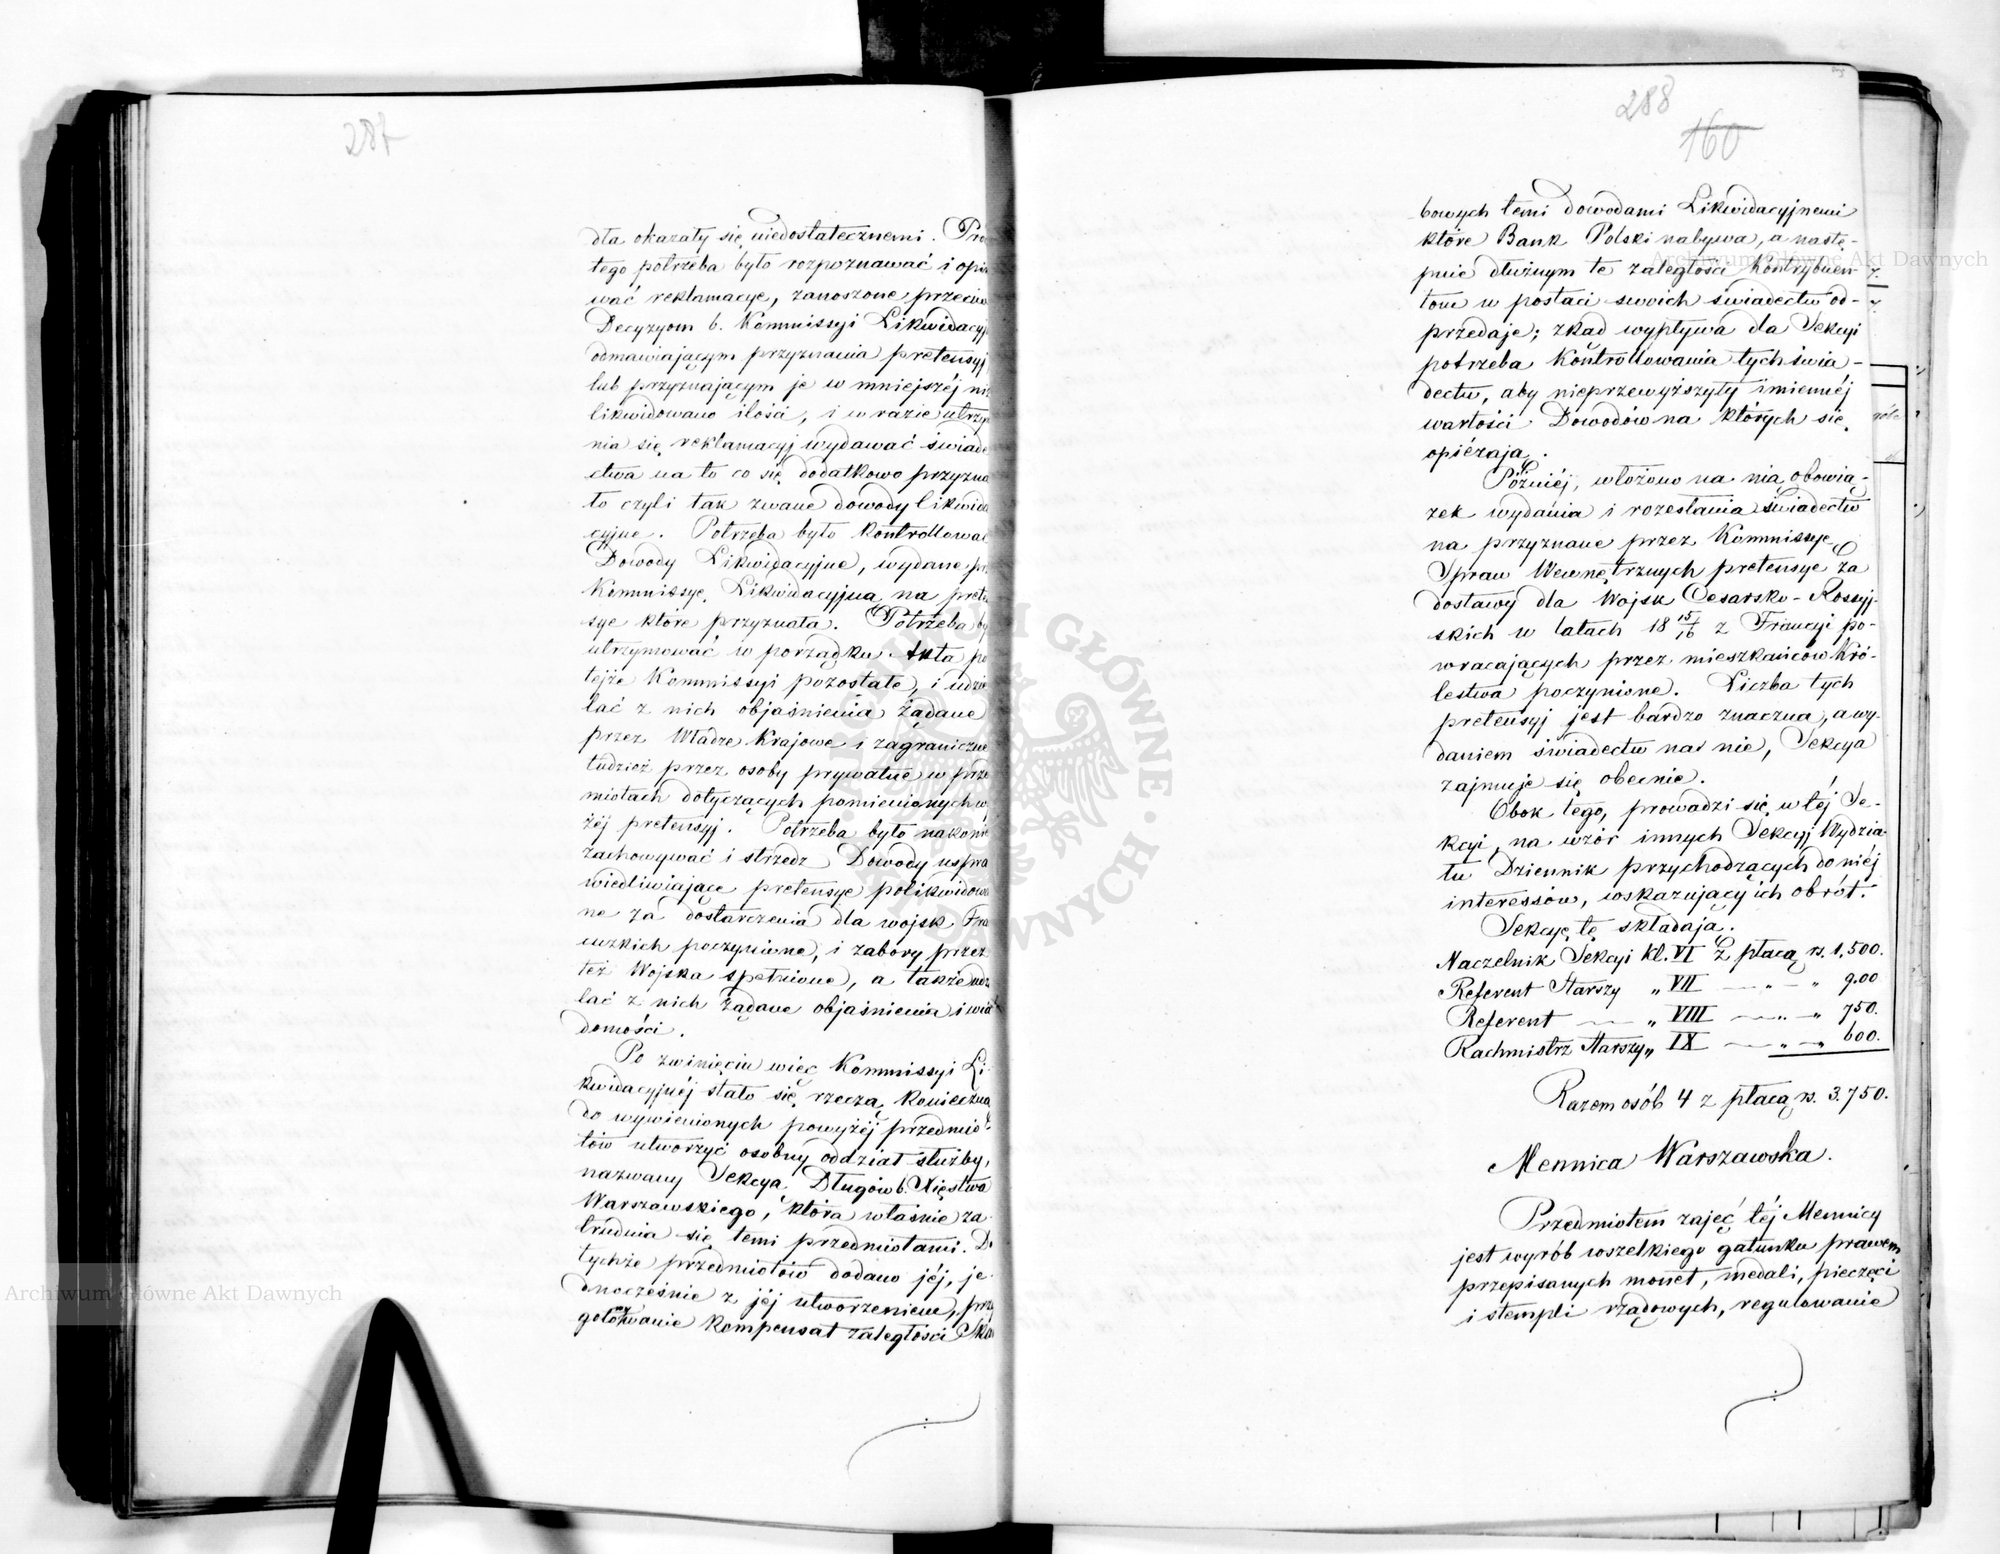 287
dła okazały się niedostatecznemi. Pró
tego potrzeba było rozpoznawać i opi
wać reklamacye, zanoszone przeciw
Decyzyom b. Kommissyi Likwidacyj
odmawiającym przyznania pretensyj
lub przyznającym je w mniejszéj niż
likwidowano ilości, i w razie utrzy
nia się reklamacyj wydawać świade
ctwa na to co się dodatkowo przyzna
to czyli tak zwane dowody likwida
cyjne. Potrzeba było kontrollować
Dowody Likwidacyjne, wydane p
Kommissyę Likwidacyjną na preten
sye które przyznała. Potrzeba by
utrzymować w porządku Akta po
tejże Kommissyi pozostałe, i udzie
lać z nich objaśnienia żądane
przez Władze Krajowe i zagraniczne
tudzież przez osoby prywatne w prze
miotach dotyczących pomienionych w
żéj pretensyj. Potrzeba było nakonie
zachowywać i strzedz Dowody uspra
wiedliwiające pretensye polikwidowa
ne za dostarczenia dla wojsk Fra
cuzkich poczynione, i zabory przez
też Wojska spełnione, a także udz
lać z nich żądane objaśnienia i wia
domości.
Po zwinięciu więc Kommissyi Li-
kwidacyjnéj stało się rzeczą konieczną
do wymienionych powyżéj przedmio-
tów utworzyć osobny oddział służby,
nazwany Sekcya Długów b. Xięstwa
Warszawskiego, która właśnie za-
trudnia się temi przedmiotami. D
tychże przedmiotów dodano jéj, je-
dnocześnie z jéj utworzeniem, przy
gotowanie kompensat zaległości Ska
288
160
bowych temi dowodami Likwidacyjnemi
które Bank Polski nabywa, a nastę-
pnie dłużnym te zaległości kontrybuen-
tom w postaci swoich świadectw od-
przedaje; zkąd wypływa dla Sekcyi
potrzeba kontrollowania tych świa-
dectw, aby nieprzewyższyły imiennéj
wartości Dowodów na których się
opiérają.
Późniéj, włożono na nią obowią-
zek wydania i rozesłania świadectw
na przyznane przez Kommissyę
Spraw Wewnętrznych pretensye za
dostawy dla Wojsk Cesarsko-Rossyj-
skich w latach 18 15/16 z Francyi po-
wracających przez mieszkańców Kró-
lestwa poczynione. Liczba tych
pretensyj jest bardzo znaczna, a wy-
daniem świadectw na nie, Sekcya
zajmuje się obecnie.
Obok tego, prowadzi się w téj Se-
kcyi, na wzór innych Sekcyj Wydzia-
łu Dziennik przychodzących do niéj
interessów, wskazujący ich obrót.
Sekcyę tę składają.
Naczelnik Sekcyi kl. VI z płacą rs. 1,500.
Referent Starszy „ VII — „ — „ 900
Referent — „ VIII — „ — „ 750.
Rachmistrz Starszy „ IX — „ — „ 600.
Razem osób 4 z płacą rs. 3.750.
Mennica Warszawska.
Przedmiotem zajęć téj Mennicy
jest wyrób wszelkiego gatunku prawem
przepisanych monet, medali, pieczęci
i stempli rządowych, regulowanie
Archiwum Główne Akt Dawnych
Archiwum Główne Akt Dawnych
ARCHIWUM GŁÓWNE AKT DAWNYCH